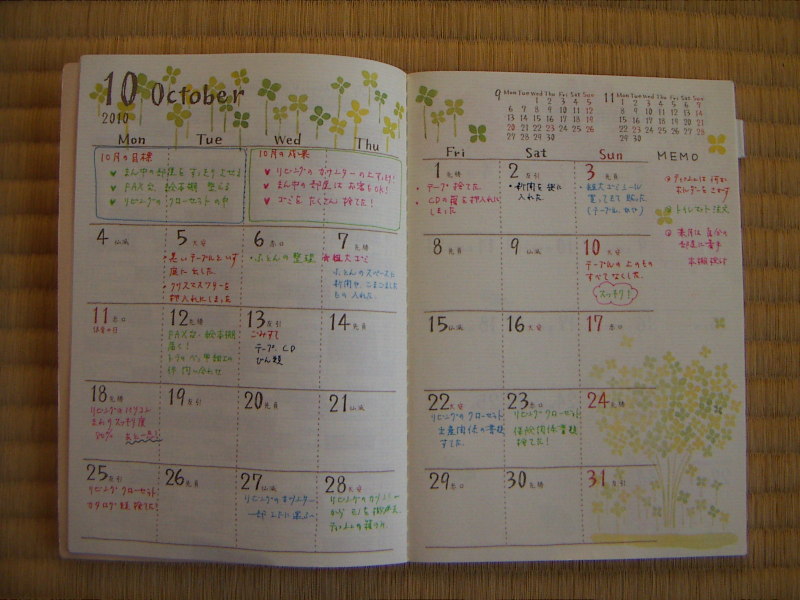 10 October
2010
Mon Tue Wed Thu
10月の目標
♥ まん中の部屋をすっきりさせる
♥ FAX台、絵本棚 整える
♥ リビングのクローゼットの中
10月の成果
♥ リビングのカウンターの上すっきり!
♥ まん中の部屋はお客もOK!
♥ ゴミをたくさん捨てた!
4 仏滅
5 大安
・黒いテーブルといす
庭に出した。
・クリスマスツリーを
押入れにしまった
6 赤口
・ふとんの整理
7 先勝
★粗大ゴミ
ふとんのスペースに
新聞や、こまごました
もの入れた。
11 赤口
体育の日
12 先勝
FAX台・絵本棚
届く!
13 友引
ごみすて
テープ、CD
びん類
14 先負
18 先勝
リビングのパソコン
まわりスッキリ度
19 友引
20 先負
21 仏滅
25 友引
リビング クローゼット
カタログ類 捨てた!
26 先負
27 仏滅
リビングのカウンター
一部 上に運ぶ
28 大安
リビングのカウンター
から
9 Mon Tue Wed Thu Fri Sat Sun
1 2 3 4 5
6 7 8 9 10 11 12
13 14 15 16 17 18 19
20 21 22 23 24 25 26
27 28 29 30
11 Mon Tue Wed Thu Fri Sat Sun
1 2 3 4 5 6 7
8 9 10 11 12 13 14
15 16 17 18 19 20 21
22 23 24 25 26 27 28
29 30
Fri Sat Sun MEMO
1 先勝
・テープ 捨てた。
・CDの箱を押入れに
しまった
2 友引
・新聞を袋に
入れた。
3 先負
・粗大ゴミシール
買ってきて貼った
8 先負
9 仏滅
10 大安
テーブルの上のもの
すべてなくした。
スッキリ!
15 仏滅
16 大安
17 赤口
22 大安
リビングのクローゼット
書類
すてた。
23 赤口
リビング クローゼット
保険関係書類
捨てた!
24 先勝
29 赤口
30 先勝
31 友引
トイレマット 注文
来月は自分の
部屋に着手
本棚